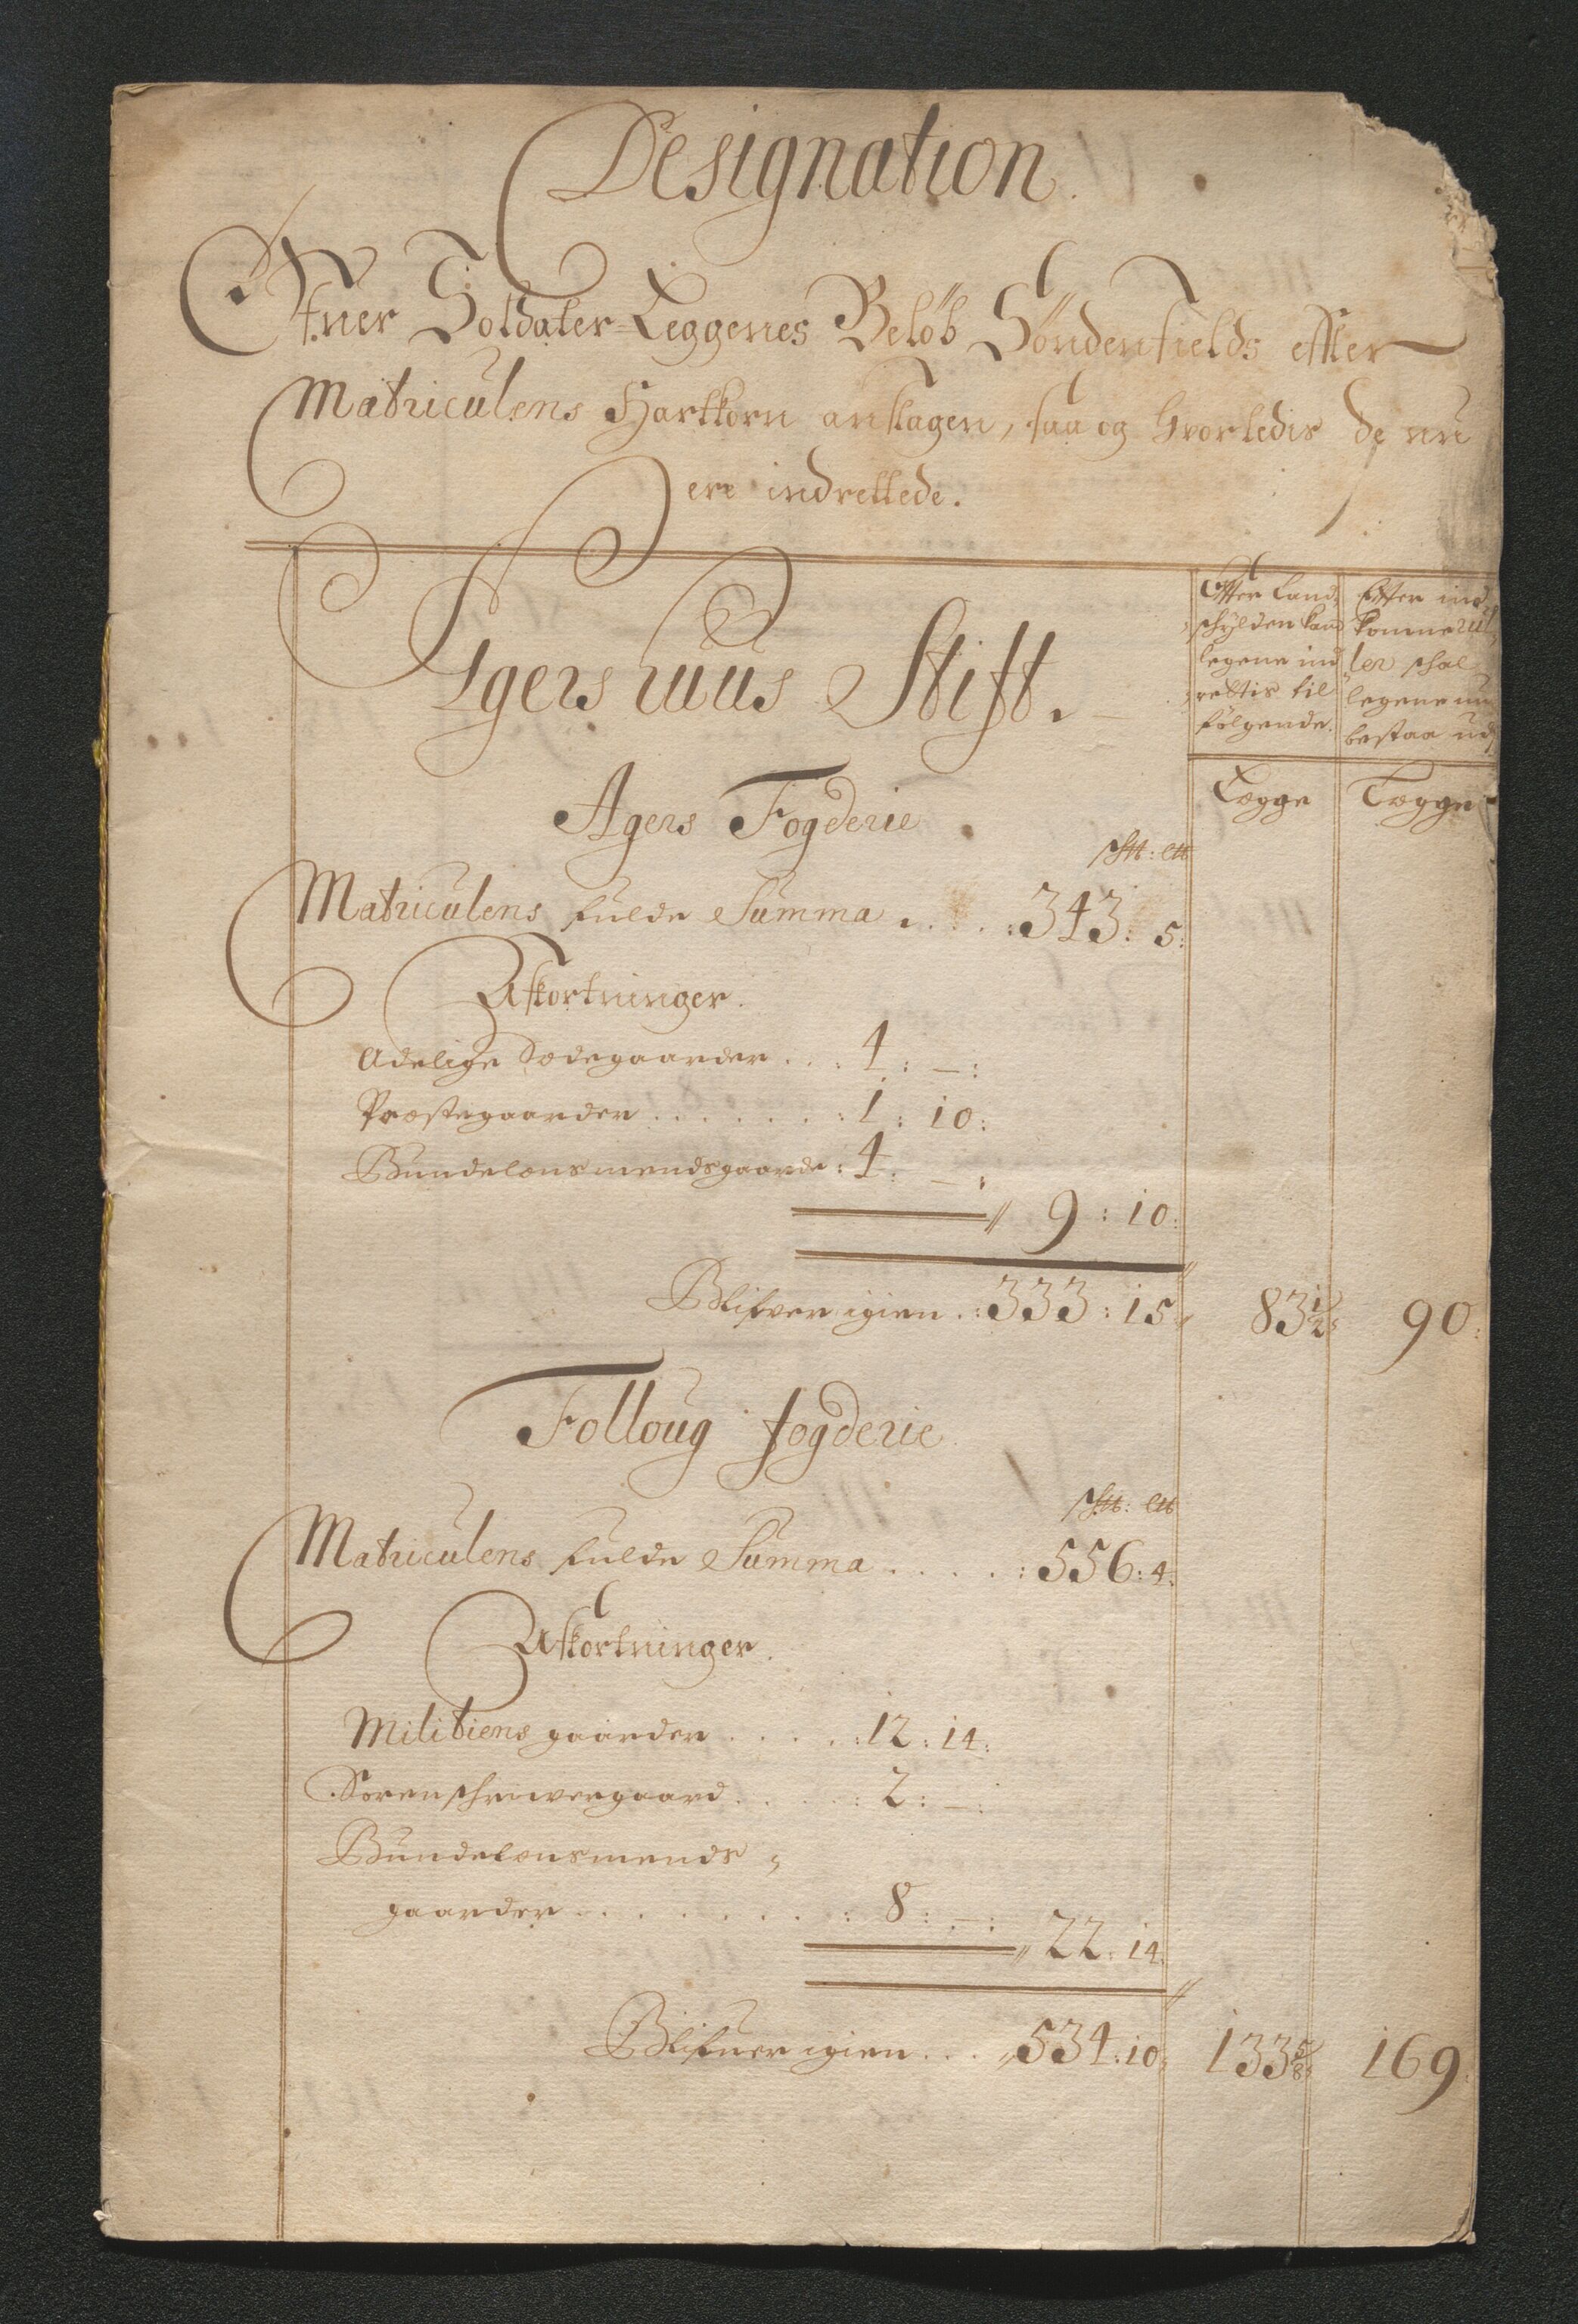 Designation
Ofuer Soldater-Leggenes Beløb Søndenfields effter
Matriculens Hartkorn antagen, saa og hvorledis de nu
ere indrettede.
Agershuus Stift.
Efter Land-
schylden kand
legene ind
rettis til
følgende.
Efter ind
komne rul
ler schal
legene nu
bestaa ud
Lægge
Lægge
Agers Fogderie
s℔: l℔
Matriculens fulde Summa . . . . : 343: 5:
Afkortninger.
Adelige Sædegaarder . . . 4: —:
Præstegaarder . . . . . . . : 1: 10:
Bundelensmendsgaarde: 4: —:
9: 10:
Blifver igien .: 333: 15 83 1/2 90:
Folloug fogderie
s℔: l℔
Matriculens fulde Summa . . . . . : 556: 4:
Afkortninger.
Militiens gaarder . . . . . : 12: 14:
Sorenschriwergaard . . . . . : 2: —:
Bundelensmends
gaarder . . . . . . . . . : 8: —:
22: 14:
Blifuer igien . . . 534: 10: 133 5/8 169